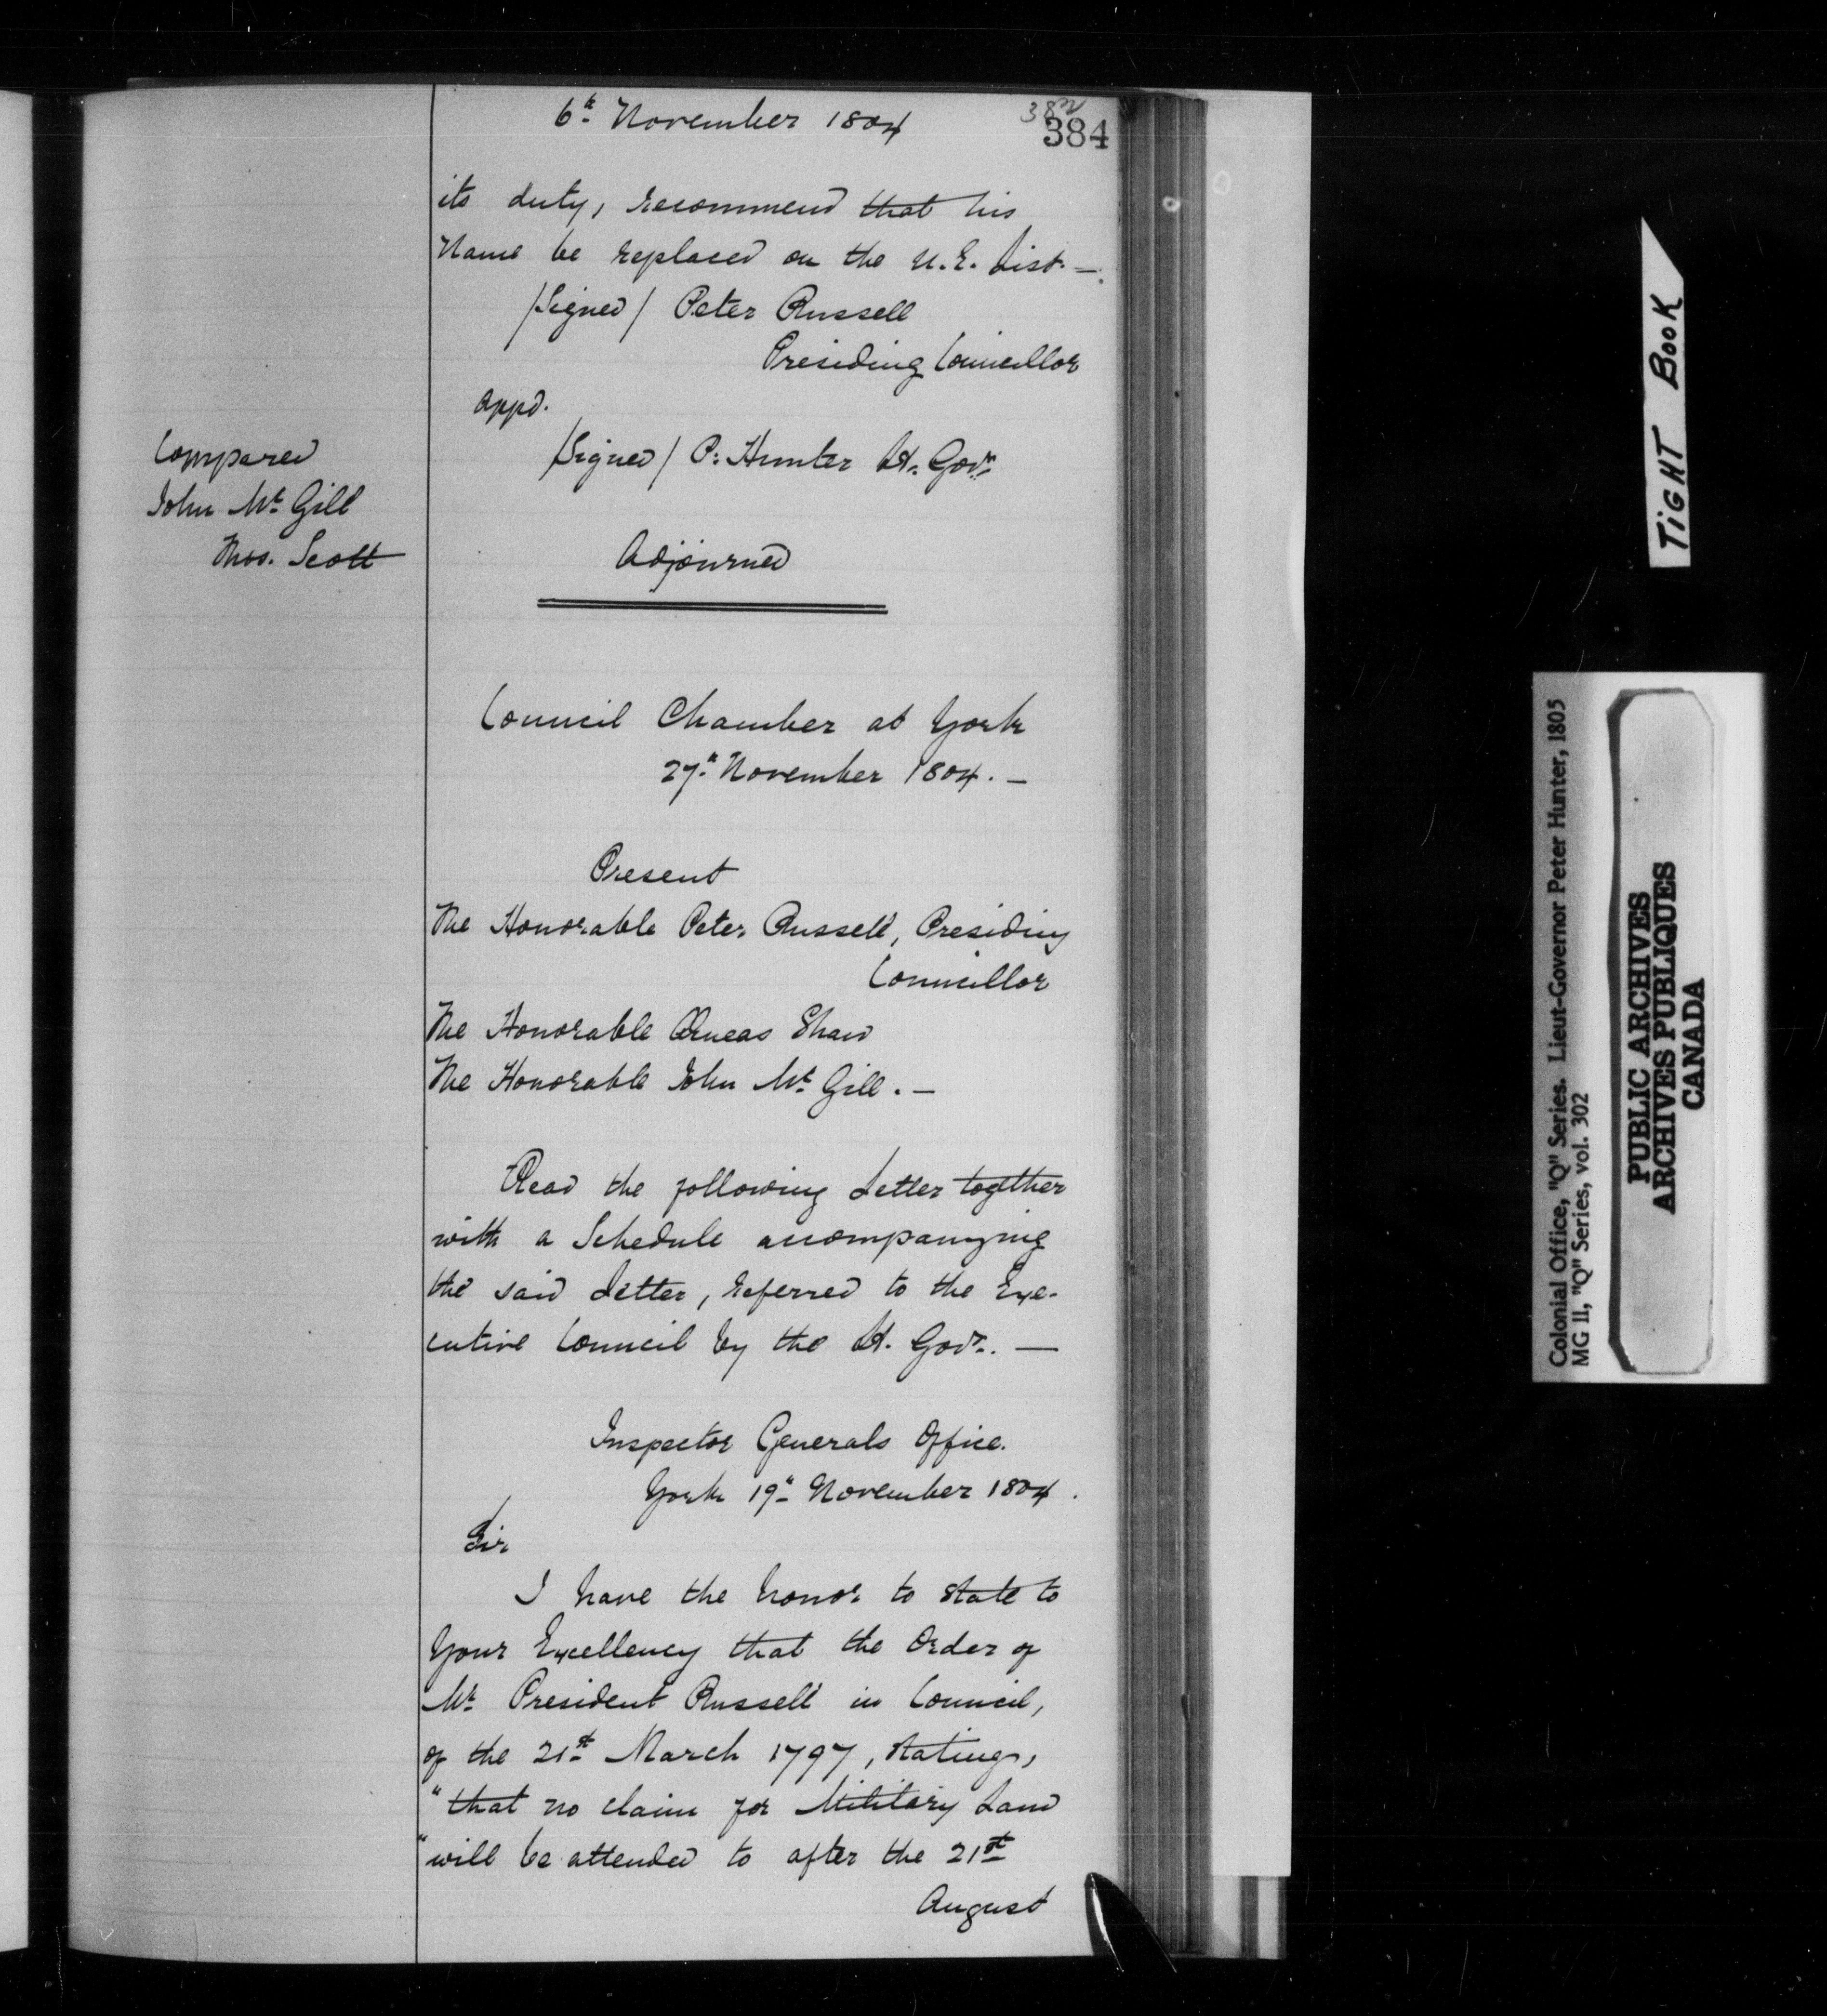 6th November 1804
382
384
its duty, recommend that his
Name be replaced on the U.E. List. —
/Signed/ Peter Russell
Presiding Councillor
Appd.
/Signed/ P. Hunter Lt. Govr.
Compared
John McGill
Thos. Scott
Adjourned
Council Chamber at York
27th November 1804. —
Present
The Honorable Peter Russell, Presiding
Councillor
The Honorable Æneas Shaw
The Honorable John McGill. —
Read the following Letter together
with a Schedule accompanying
the said Letter, referred to the Exe-
cutive Council by the Lt. Govr. —
Inspector Generals Office.
York 19th November 1804.
Sir
I have the honor to state to
Your Excellency that the Order of
Mr President Russell in Council,
of the 21st March 1797, stating,
"that no claim for Military Land
"will be attended to after the 21st
August
TIGHT BOOK
Colonial Office, "Q" Series. Lieut-Governor Peter Hunter, 1805
MG 11, "Q" Series, vol. 302
PUBLIC ARCHIVES
ARCHIVES PUBLIQUES
CANADA